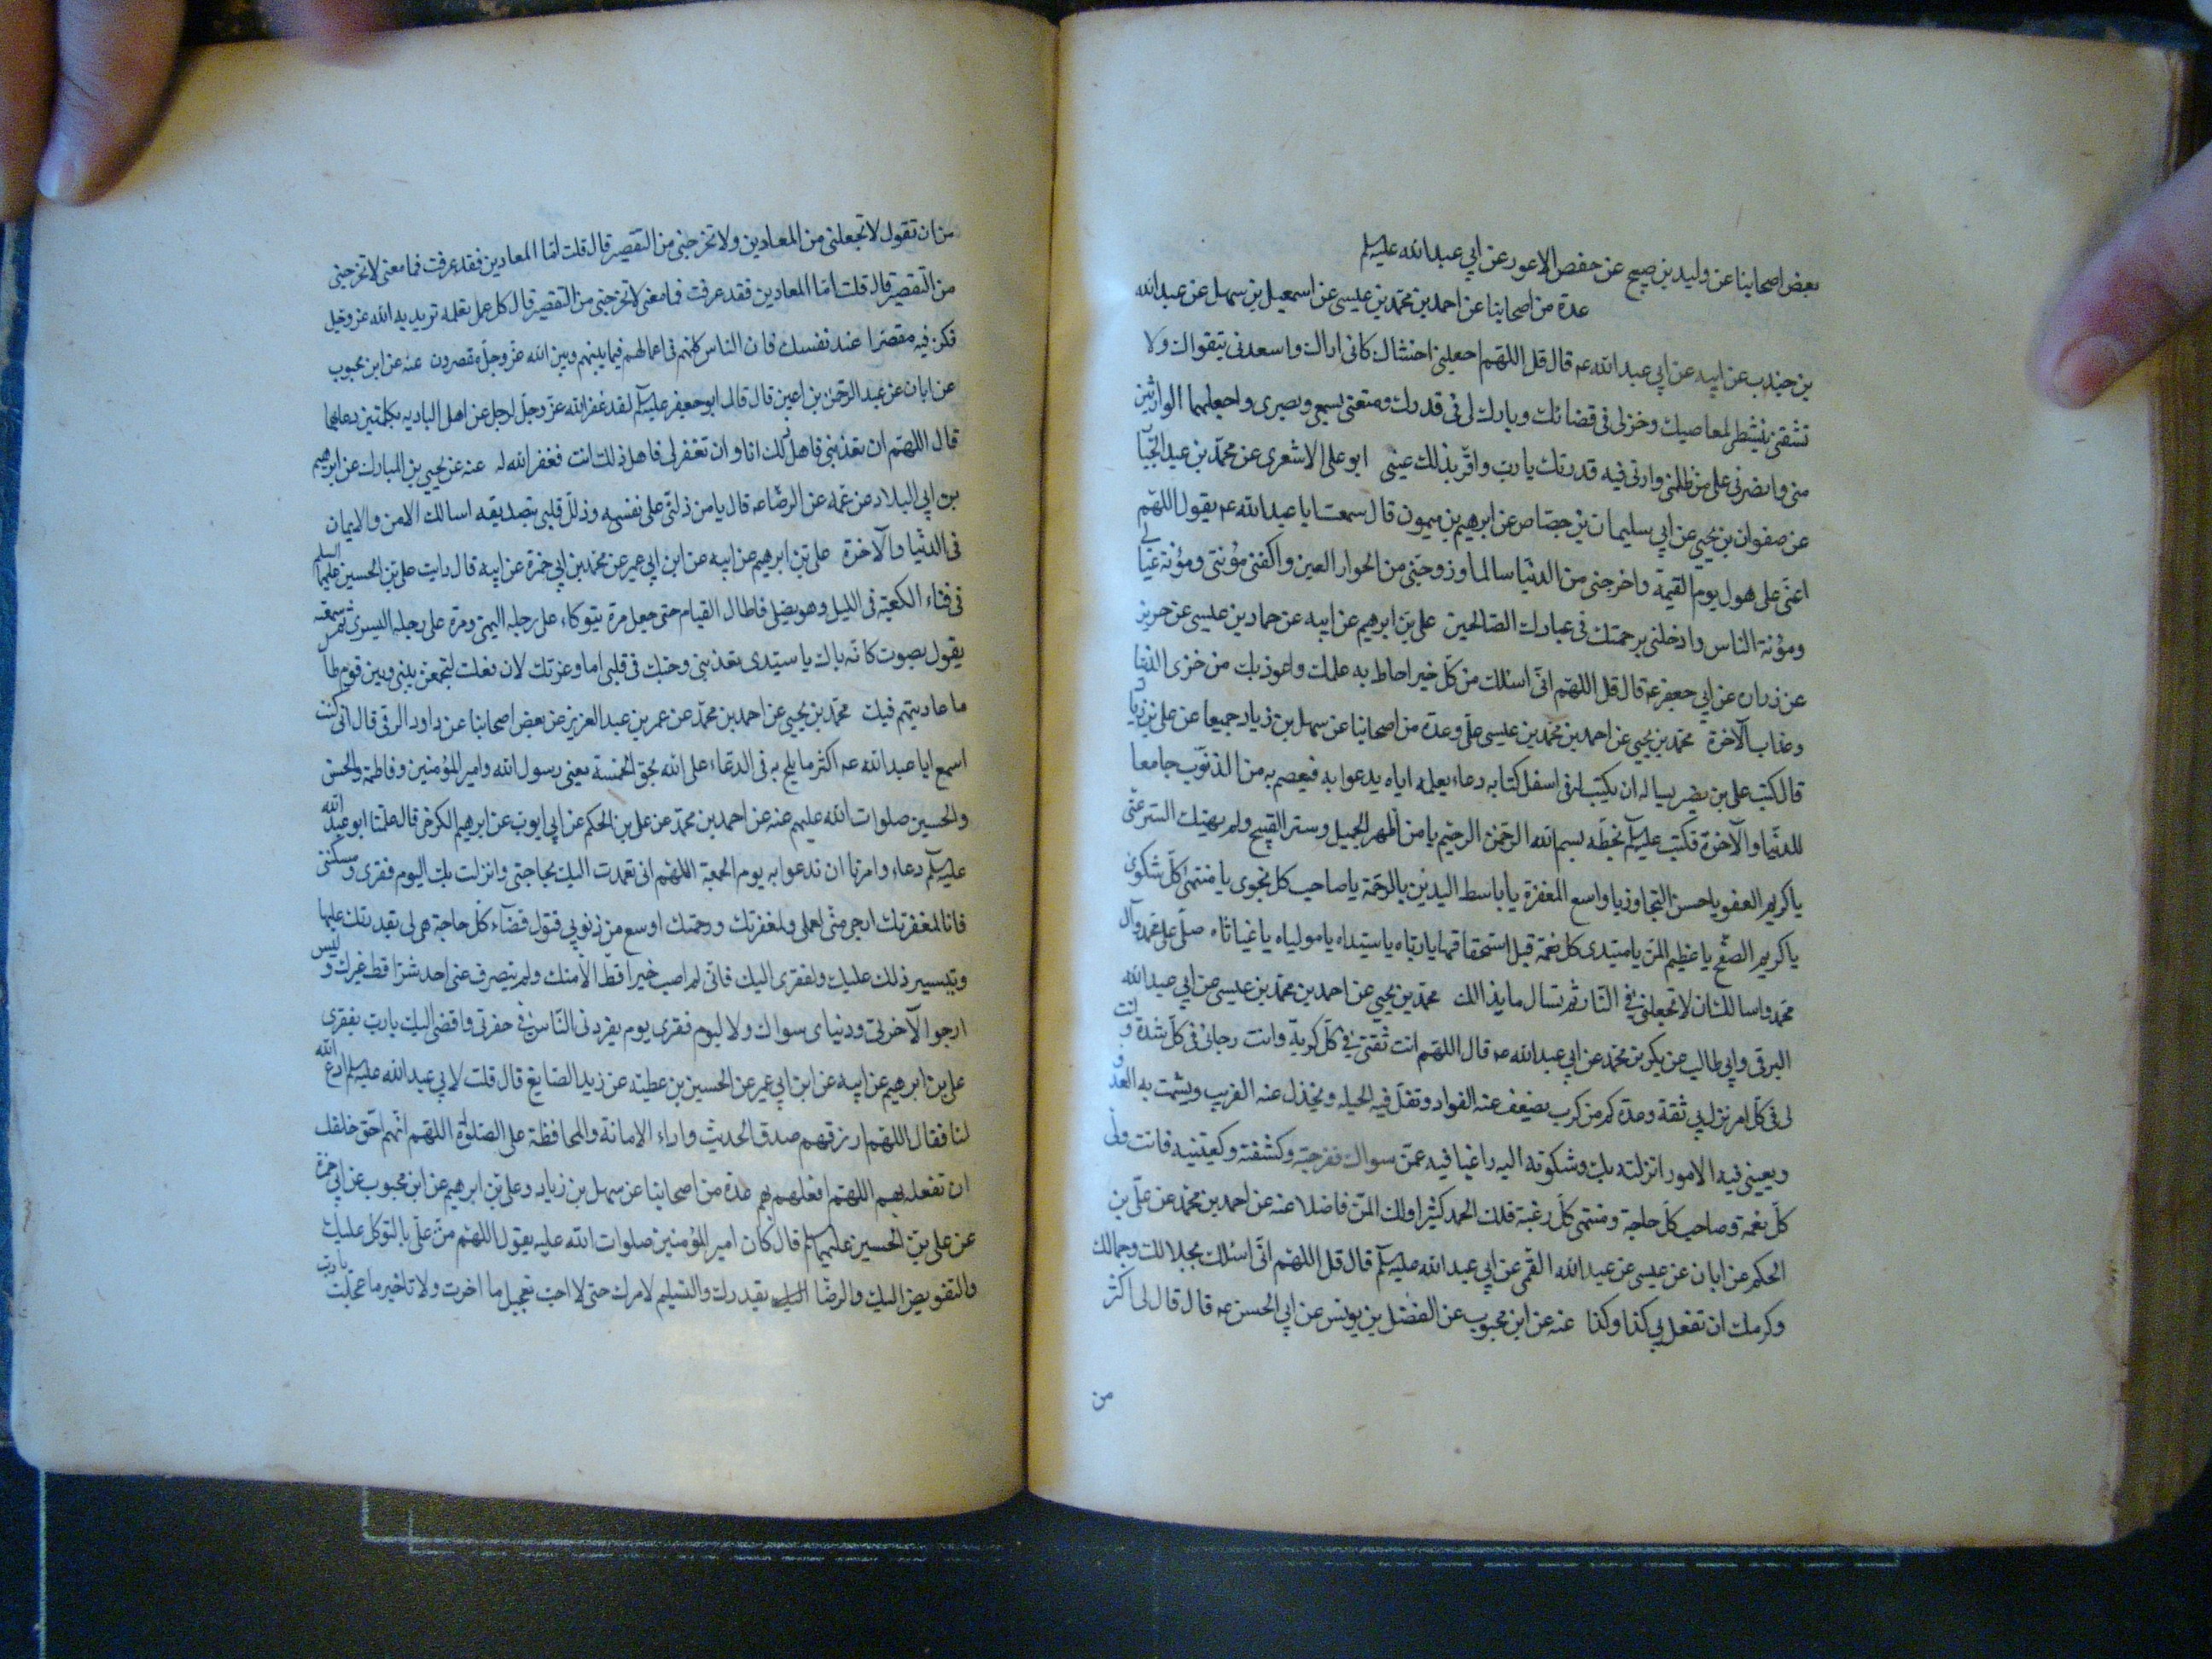 بعض اصحابنا عن وليد بن صبيح عن حفص الاعور عن ابي عبد الله عليه سلم
عدة من اصحابنا عن احمد بن محمد بن عيسى عن اسمعيل بن سهل عن عبد الله
بن جندب عن ابيه عن ابي عبد الله عه قال قل اللهم اجعلني اخشاك كانى اراك واسعدنى بتقواك ولا
تشقنى بنشطى لمعاصيك وخر لى فى قضائك وبارك لى فى قدرك ومتعنى بسمعى وبصرى واجعلهما الوارثين
منى وانصرنى على من ظلمنى وارنى فيه قدرتك يا رب واقر بذلك عينى ابو على الاشعرى عن محمد بن عبد الجبا
عن صفوان بن يحيى عن ابي سليمان بن جصاص عن ابرهيم بن ميمون قال سمعت ابا عبد الله عه يقول اللهم
اعنى على هول يوم القيمة واخرجنى من الدنيا سالما وزوجنى من الحوار العين واكفنى مؤنتى ومؤنة عيالى
ومؤنة الناس وادخلنى برحمتك فى عبادك الصالحين على بن ابرهيم عن ابيه عن حماد بن عيسى عن حريز
عن زراره عن ابي جعفر عه قال قل اللهم انى اسئلك من كل خير احاط به علمك واعوذ بك من خزى الدنيا
وعذاب الآخرة محمد بن يحيى عن احمد بن محمد بن عيسى على وعدة من اصحابنا عن سهل بن زياد جميعا عن على بن زياد
قال كتب على بن بصير يساله ان يكتب له فى اسفل كتابه دعاء يعلمه اياه يدعوا به فيعصم به من الذنوب جامعا
للدنيا والآخرة فكتب عليه سلم بخطه بسم الله الرحمن الرحيم يا من اظهر الجميل وستر القبيح ولم يهتك الستر عنى
يا كريم العفو يا حسن التجاوز يا واسع المغفرة يا باسط اليدين بالرحمة يا صاحب كل نجوى يا منتهى كل شكوى
يا كريم الصفح يا عظيم المن يا مبتدى كل نعمة قبل استحقاقها يا رباه يا سيداه يا مولياه يا غياثاه صل على محمد وآل
محمد واسالك ان لا تجعلنى فى النار ثم تسال ما بذالك محمد بن يحيى عن احمد بن محمد بن عيسى عن ابي عبد الله
البرقى وابي طالب عن بكر بن محمد عن ابي عبد الله عه قال اللهم انت ثقتى فى كل كربة وانت رجائى فى كل شدة وانت
لى فى كل امر نزل بي ثقة وعدة كم من كرب يضعف عنه الفواد وتقل فيه الحيله ويخذل عنه القريب ويشمت به العدو
ويعيينى فيه الامور انزلته بك وشكوته اليه راغبا فيه عمن سواك ففرجته وكشفته وكفيتنيه فانت ولى
كل نعمة وصاحب كل حاجة ومنتهى كل رغبة فلك الحمد كثيرا ولك المن فاضلا عنه عن احمد بن محمد عن على بن
الحكم عن ابان عن عيسى عن عبد الله القمى عن ابي عبد الله عليه سلم قال قل اللهم انى اسئلك بجلالك وجمالك
وكرمك ان تفعل بي كذا وكذا عنه عن ابن محبوب عن الفضل بن يونس عن ابي الحسن عه قال قال لى اكثر
من
من ان تقول لا تجعلنى من المعادين ولا تخرجنى من التقصير قال قلت امّا المعادين فقد عرفت فما معنى لا تخرجنى
من التقصير قال قلت امّا المعادين فقد عرفت فما معنى لا تخرجنى من التقصير قال كل عمل تعلمه تريد به الله عز وجل
فكن فيه مقصرا عند نفسك فان الناس كلهم فى اعمالهم فيما بينهم وبين الله عز وجل مقصرون عنه عن ابن محبوب
عن ابان عن عبد الرحمن بن اعين قال قال ابو جعفر عليه سلم لقد غفر الله عز وجل لرجل عن اهل الباديه بكلمتين دعابهما
قال اللهم ان تعذبنى فاهل لذلك انا وان تغفر لى فاهل ذلك انت فغفر الله له عنه عن يحيى بن المبارك عن ابرهيم
بن ابي البلاد عن عمه عن الرضا عه قال يا من ذلنى على نفسه وذلل قلبى بتصديقه اسالك الامن والايمان
فى الدنيا والآخرة على بن ابرهيم عن ابيه عن ابن ابي عمير عن محمد بن ابي حمزة عن ابيه قال رايت على بن الحسين عليهما السلم
فى فناء الكعبة فى الليل وهو يصلى فاطال القيام حتى جعل مرة يتوكاء على رجله اليمنى ومرة على رجله اليسرى ثم سمعته
يقول بصوت كانه باك يا سيدى تعذبنى وحبك فى قلبى اما وعزتك لان فعلت لتجمعن بينى وبين قوم طا
ما عاديتهم فيك محمد بن يحيى عن احمد بن محمد عن عمر بن عبد العزيز عن بعض اصحابنا عن داود الرقى قال انى كنت
اسمع ابا عبد الله عه اكثر ما يلح به فى الدعاء على الله بحق الخمسة يعنى رسول الله وامير المؤمنين وفاطمة والحسن
والحسين صلوات الله عليهم عنه عن احمد بن محمد عن على بن الحكم عن ابي ايوب عن ابرهيم الكرخى قال علمنا ابو عبد الله
عليه سلم دعاء وامرنا ان ندعوا به يوم الجمعة اللهم انى تعمدت اليك بحاجتى وانزلت بك اليوم فقرى ومسكنتى
فانا لمغفرتك ارجى منى لعملى ولمغفرتك ورحمتك اوسع من ذنوبي فتول قضاء كل حاجة هى لى بقدرتك عليها
وتيسير ذلك عليك ولفقرى اليك فانى لم اصب خيرا قط الا منك ولم يصرف عنى احد شرا قط غيرك وليس
ارجوا لآخرتى ودنياى سواك ولا ليوم فقرى يوم يفردنى الناس فى حفرتى وافضى اليك يا رب بفقرى
على بن ابرهيم عن ابيه عن ابن ابي عمير عن الحسين بن عطيه عن زيد الصايغ قال قلت لابي عبد الله عليه سلم ادع الله
لنا فقال اللهم ارزقهم صدق الحديث واداء الامانة والمحافظة على الصلوة اللهم انهم احق خلقك
ان تفعله بهم اللهم افعلهم بهم عدة من اصحابنا عن سهل بن زياد وعلى بن ابرهيم عن ابن محبوب عن ابي حمزة
عن على بن الحسين عليهما سلم قال كان امير المؤمنين صلوات الله عليه يقول اللهم من على بالتوكل عليك
والتفويض اليك والرضا بقدرك والتسليم لامرك حتى لا احب تعجيل ما اخرت ولا تاخير ما عجلت يا رب